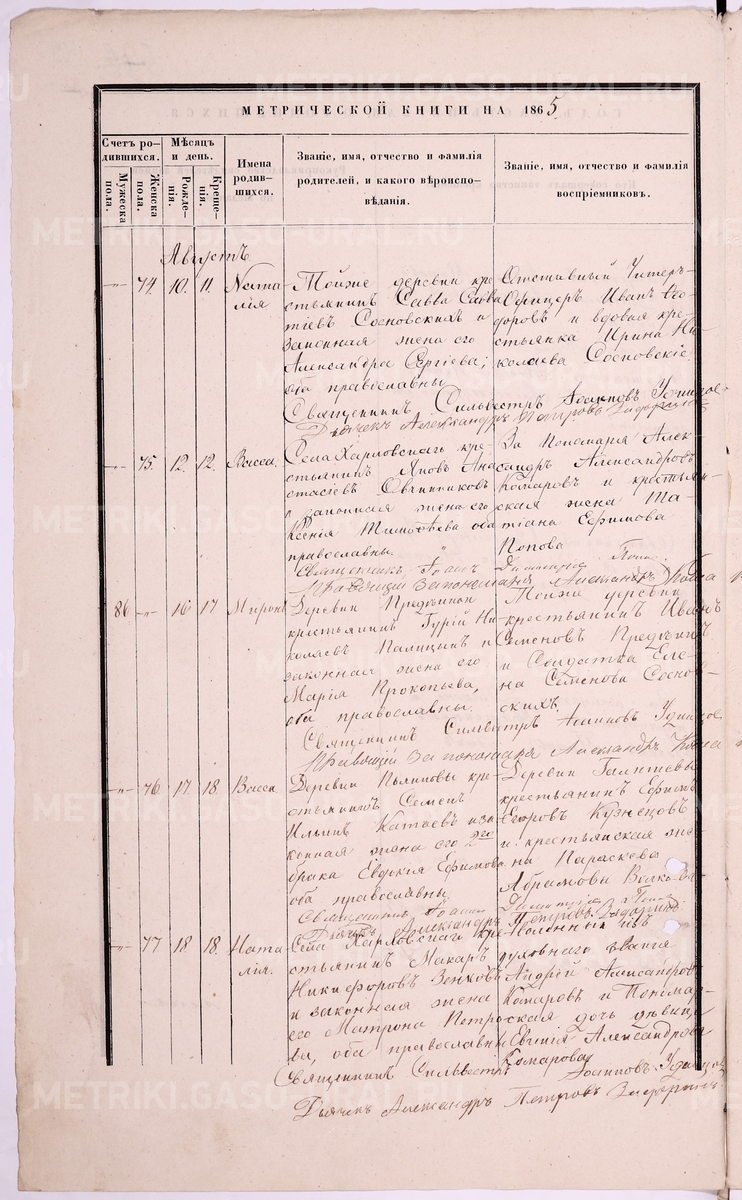 МЕТРИЧЕСКОЙ КНИГИ НА 1865
Счетъ ро-
дившихся.
Мужеска
пола.
Женска
пола.
Мѣсяцъ
и день.
Рожде-
нія.
Креще-
нія.
Имена
родив-
шихся.
Званіе, имя, отчество и фамилія
родителей, и какого вѣроиспо-
вѣданія.
Званіе, имя, отчество и фамилія
воспріемниковъ.
Августъ
74. 10. 11. Ната-
лія
Тойже деревни кре-
стьянинъ Савва Савва-
тіевъ Сосновскихъ и
законная жена его
Александра Сергіева;
оба православны
Отставный Унтеръ-
Офицеръ Иванъ Ѳео-
доровъ и вдовая кре-
стьянка Ирина Ни-
колаева Сосновскіе.
Священникъ Сильвестръ Удинцов
Дьячекъ Александръ Петровъ
75. 12. 12. Васса.
Села Харловскаго кре-
стьянинъ Яковъ Ана-
стасіевъ Овчинниковъ
и законная жена его
Ксенія Тимоѳеева оба
православны.
За Пономаря Алек-
сандръ Александровъ
Комаровъ и крестьян-
ская жена Та-
тіана Ефимова
Попова
Священникъ Іоаннъ
Правящій За пономаря Александръ Кома
86 16 17 Миронъ
Деревни Предѣиной
крестьянинъ Гурій Ни-
колаевъ Палицинъ и
законная жена его
Марія Прокопьева,
оба православны.
Тойже деревни
крестьянинъ Иванъ
Семеновъ Предѣинъ
и Солдатка Еле-
на Семенова Сосно-
скихъ.
Священникъ Сильвестръ Удинцов
Правящій За пономаря Александръ Кома
76 17. 18. Васса
Деревни Пьянковы кре-
стьянинъ Семенъ
Ильинъ Катаевъ и за-
конная жена его 2го
брака Евдокія Ефимова
оба православны
Деревни Галишевы
крестьянинъ Ефимъ
Егоровъ Кузнецовъ
и крестьянская же-
на Параскева
Абрамовы
Священникъ Іоаннъ
Дьячекъ Александръ Петровъ
77 18 18. Ната-
лія.
Села Харловскаго кре-
стьянинъ Макаръ
Никифоровъ Зенковъ
и законная жена
его Матрона Петро-
ва, оба православны
Уволенный изъ
духовнаго званія
Андрей Александров
Комаровъ и Пономар-
ская дочь дѣвица
Евгенія Александрова
Комарова
Священникъ Сильвестръ Удинцов
Дьячекъ Александръ Петровъ
METRIKI.GASO-URAL.RU